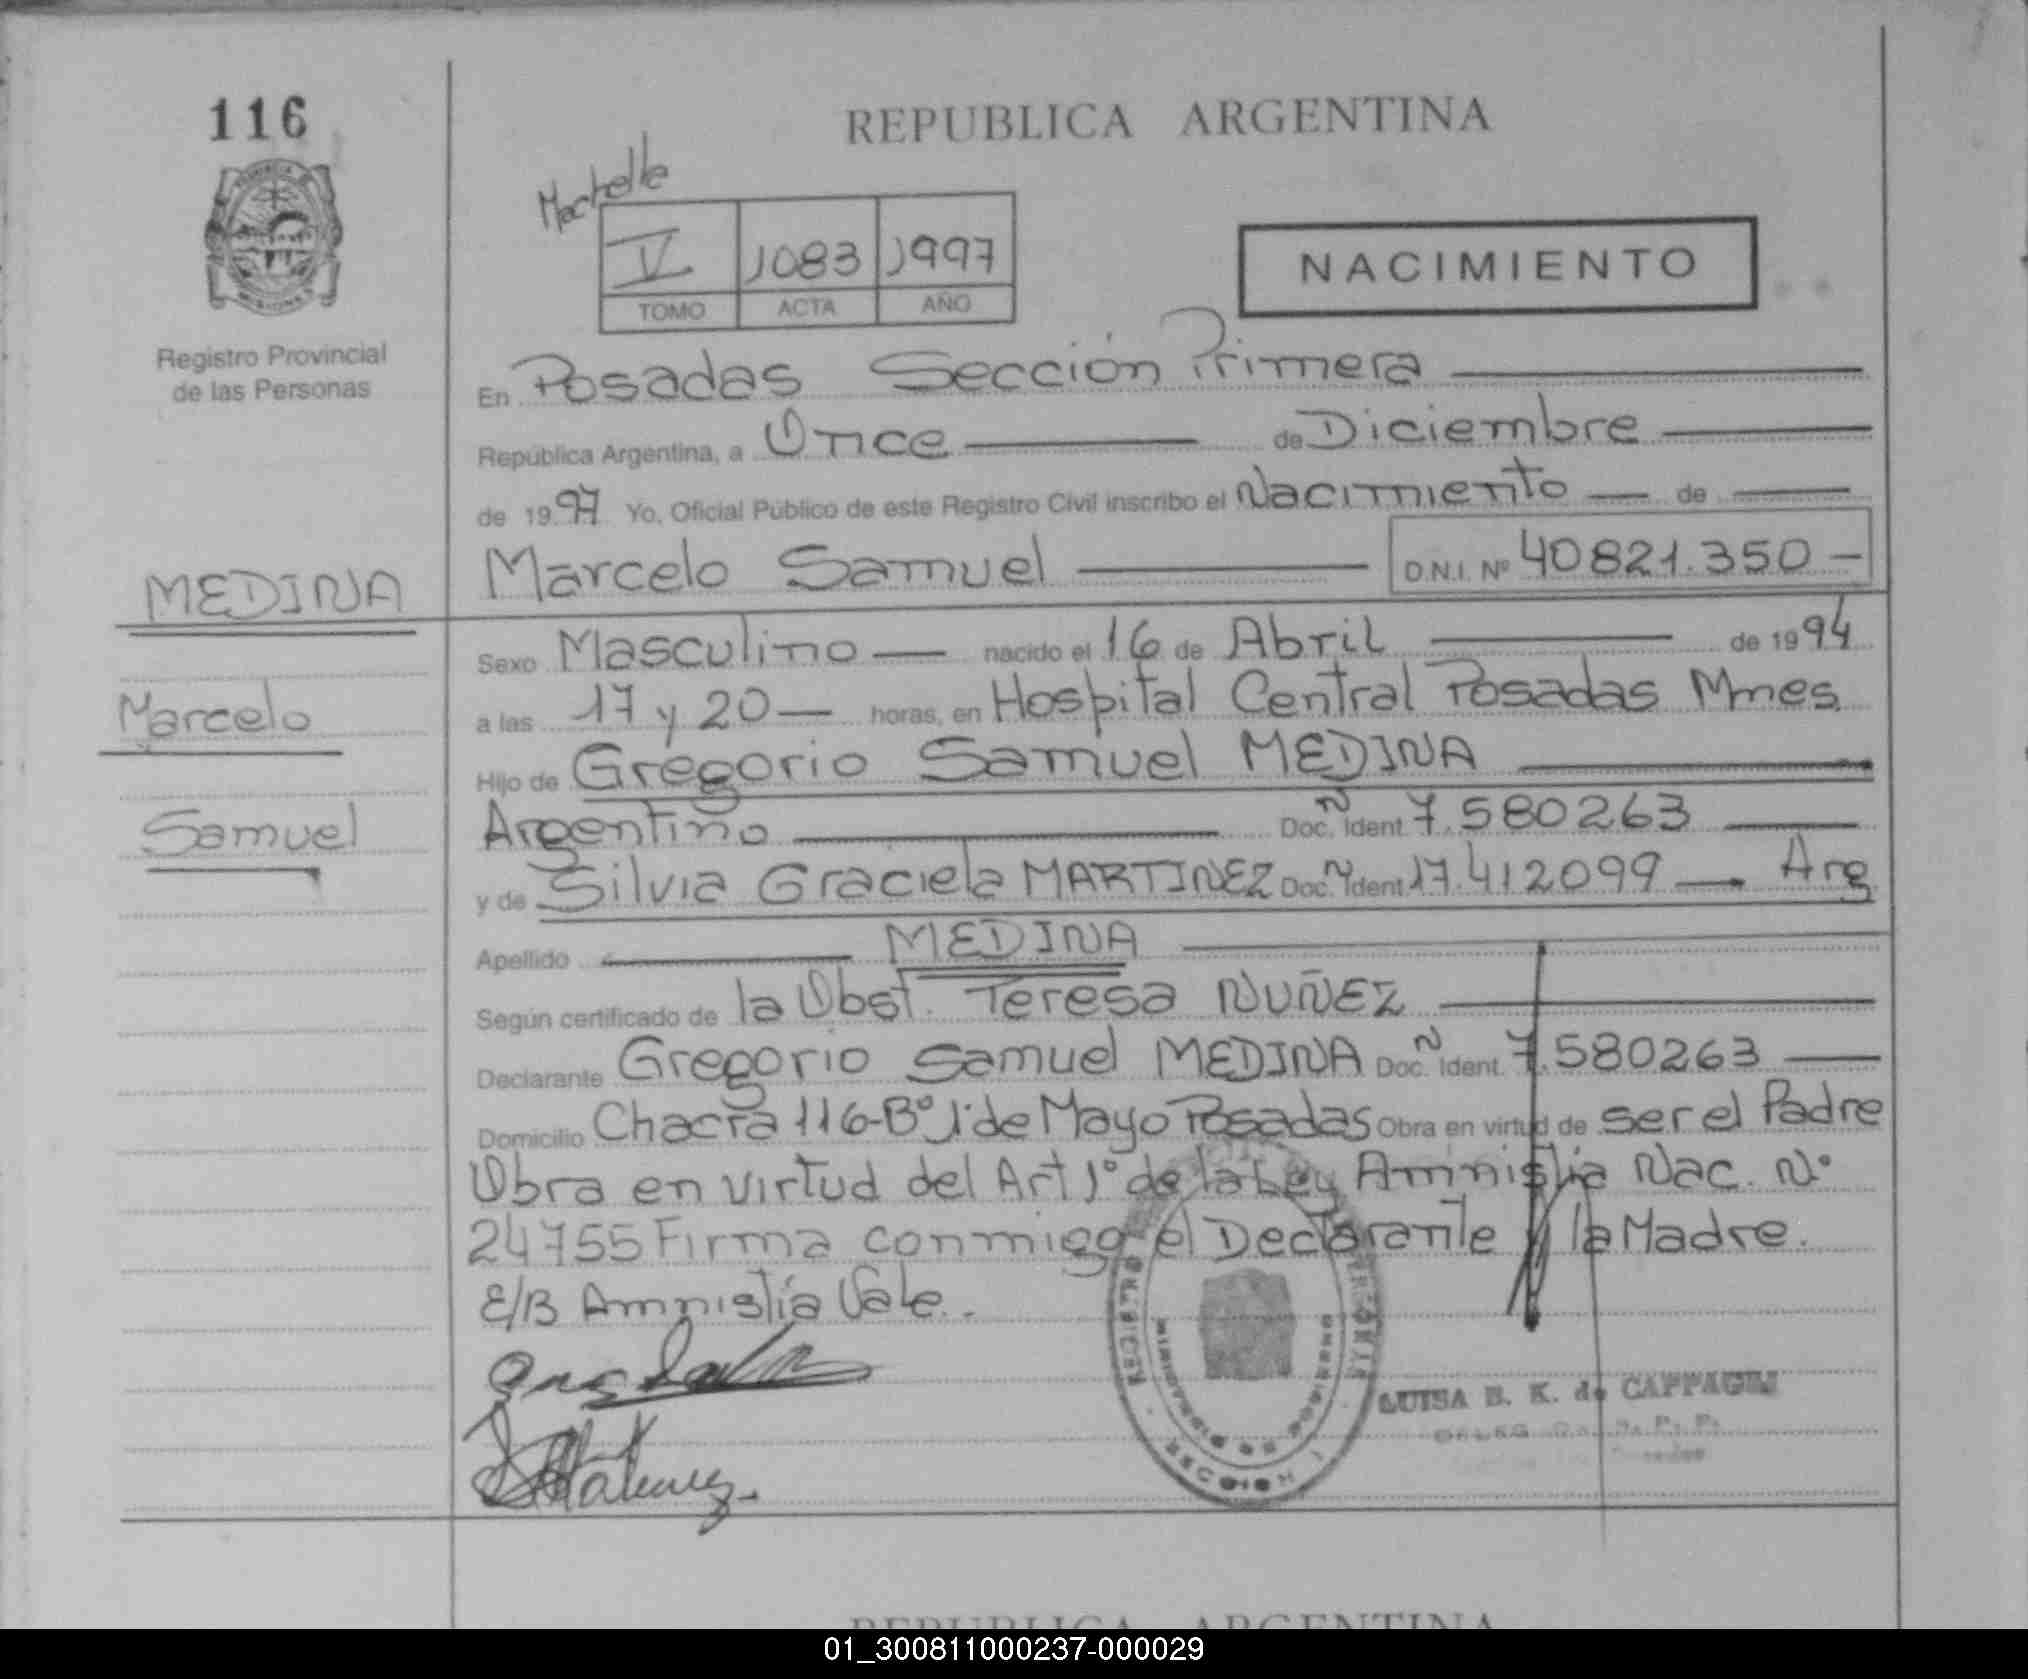 116
REPUBLICA ARGENTINA
Machelle
V 1083 1997
TOMO ACTA AÑO
NACIMIENTO
Registro Provincial
de las Personas
En Posadas Sección Primera
República Argentina, a Once de Diciembre
de 1997 Yo, Oficial Público de este Registro Civil inscribo el Nacimiento de
MEDINA
Marcelo Samuel D.N.I. Nº 40821.350
Sexo Masculino nacido el 16 de Abril de 1994
Marcelo
a las 17 y 20 horas, en Hospital Central Posadas Mnes.
Hijo de Gregorio Samuel MEDINA
Samuel
Argentino Doc. Ident. 7.580263
y de Silvia Graciela MARTINEZ Doc. Ident 17.412099 Arg
Apellido MEDINA
Según certificado de la Obst. Teresa NUÑEZ
Declarante Gregorio Samuel MEDINA Doc. Ident. 7.580263
Domicilio Chacra 116-Bº 1º de Mayo Posadas Obra en virtud de ser el Padre
Obra en virtud del Art 1º de la Ley Amnistía Nac. Nº
24755 Firma conmigo el Declarante y la Madre.
E/B Amnistía Vale.
LUISA B. K. de
SECCION 1
REPUBLICA ARGENTINA
01_300811000237-000029